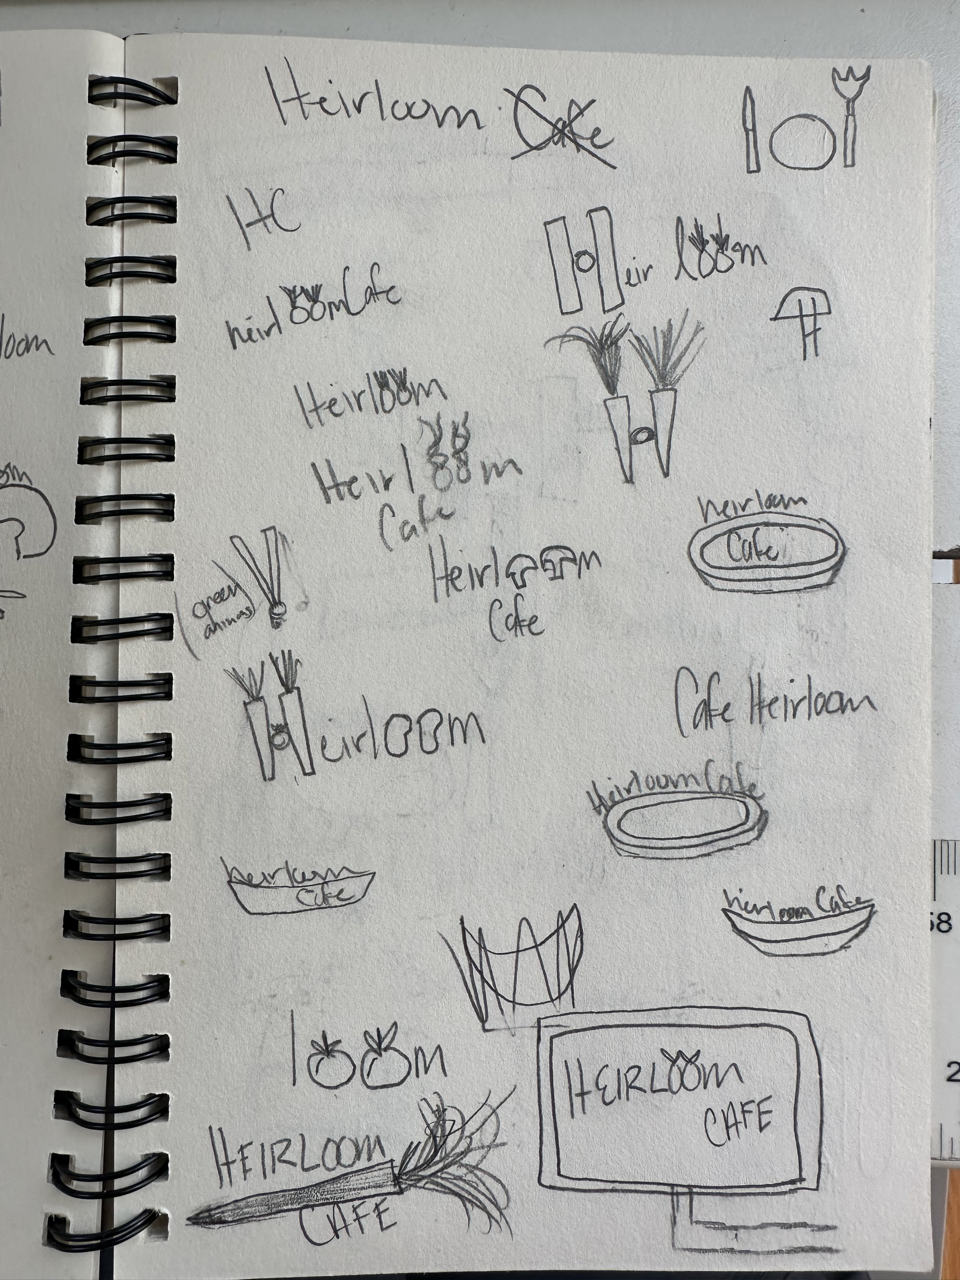 Heirloom Cafe
HC
Heirloom
heirloom Cafe
H
Heirloom
Heirloom
Cafe
H
heirloom
Cafe
Heirloom
Cafe
green
loom
Heirloom
Cafe Heirloom
Heirloom Cafe
heirloom
Cafe
heirloom Cafe
loom
HEIRLOOM
CAFE
HEIRLOOM
CAFE
58
2